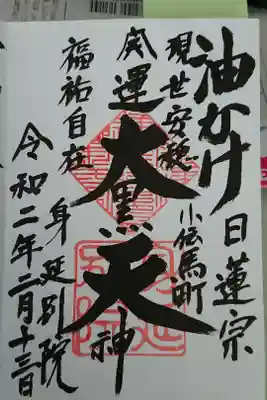 油かけ 日蓮宗
現世安穏 小伝馬町
開運大黒天神
福祐自在 身延別院
令和二年二月十三日